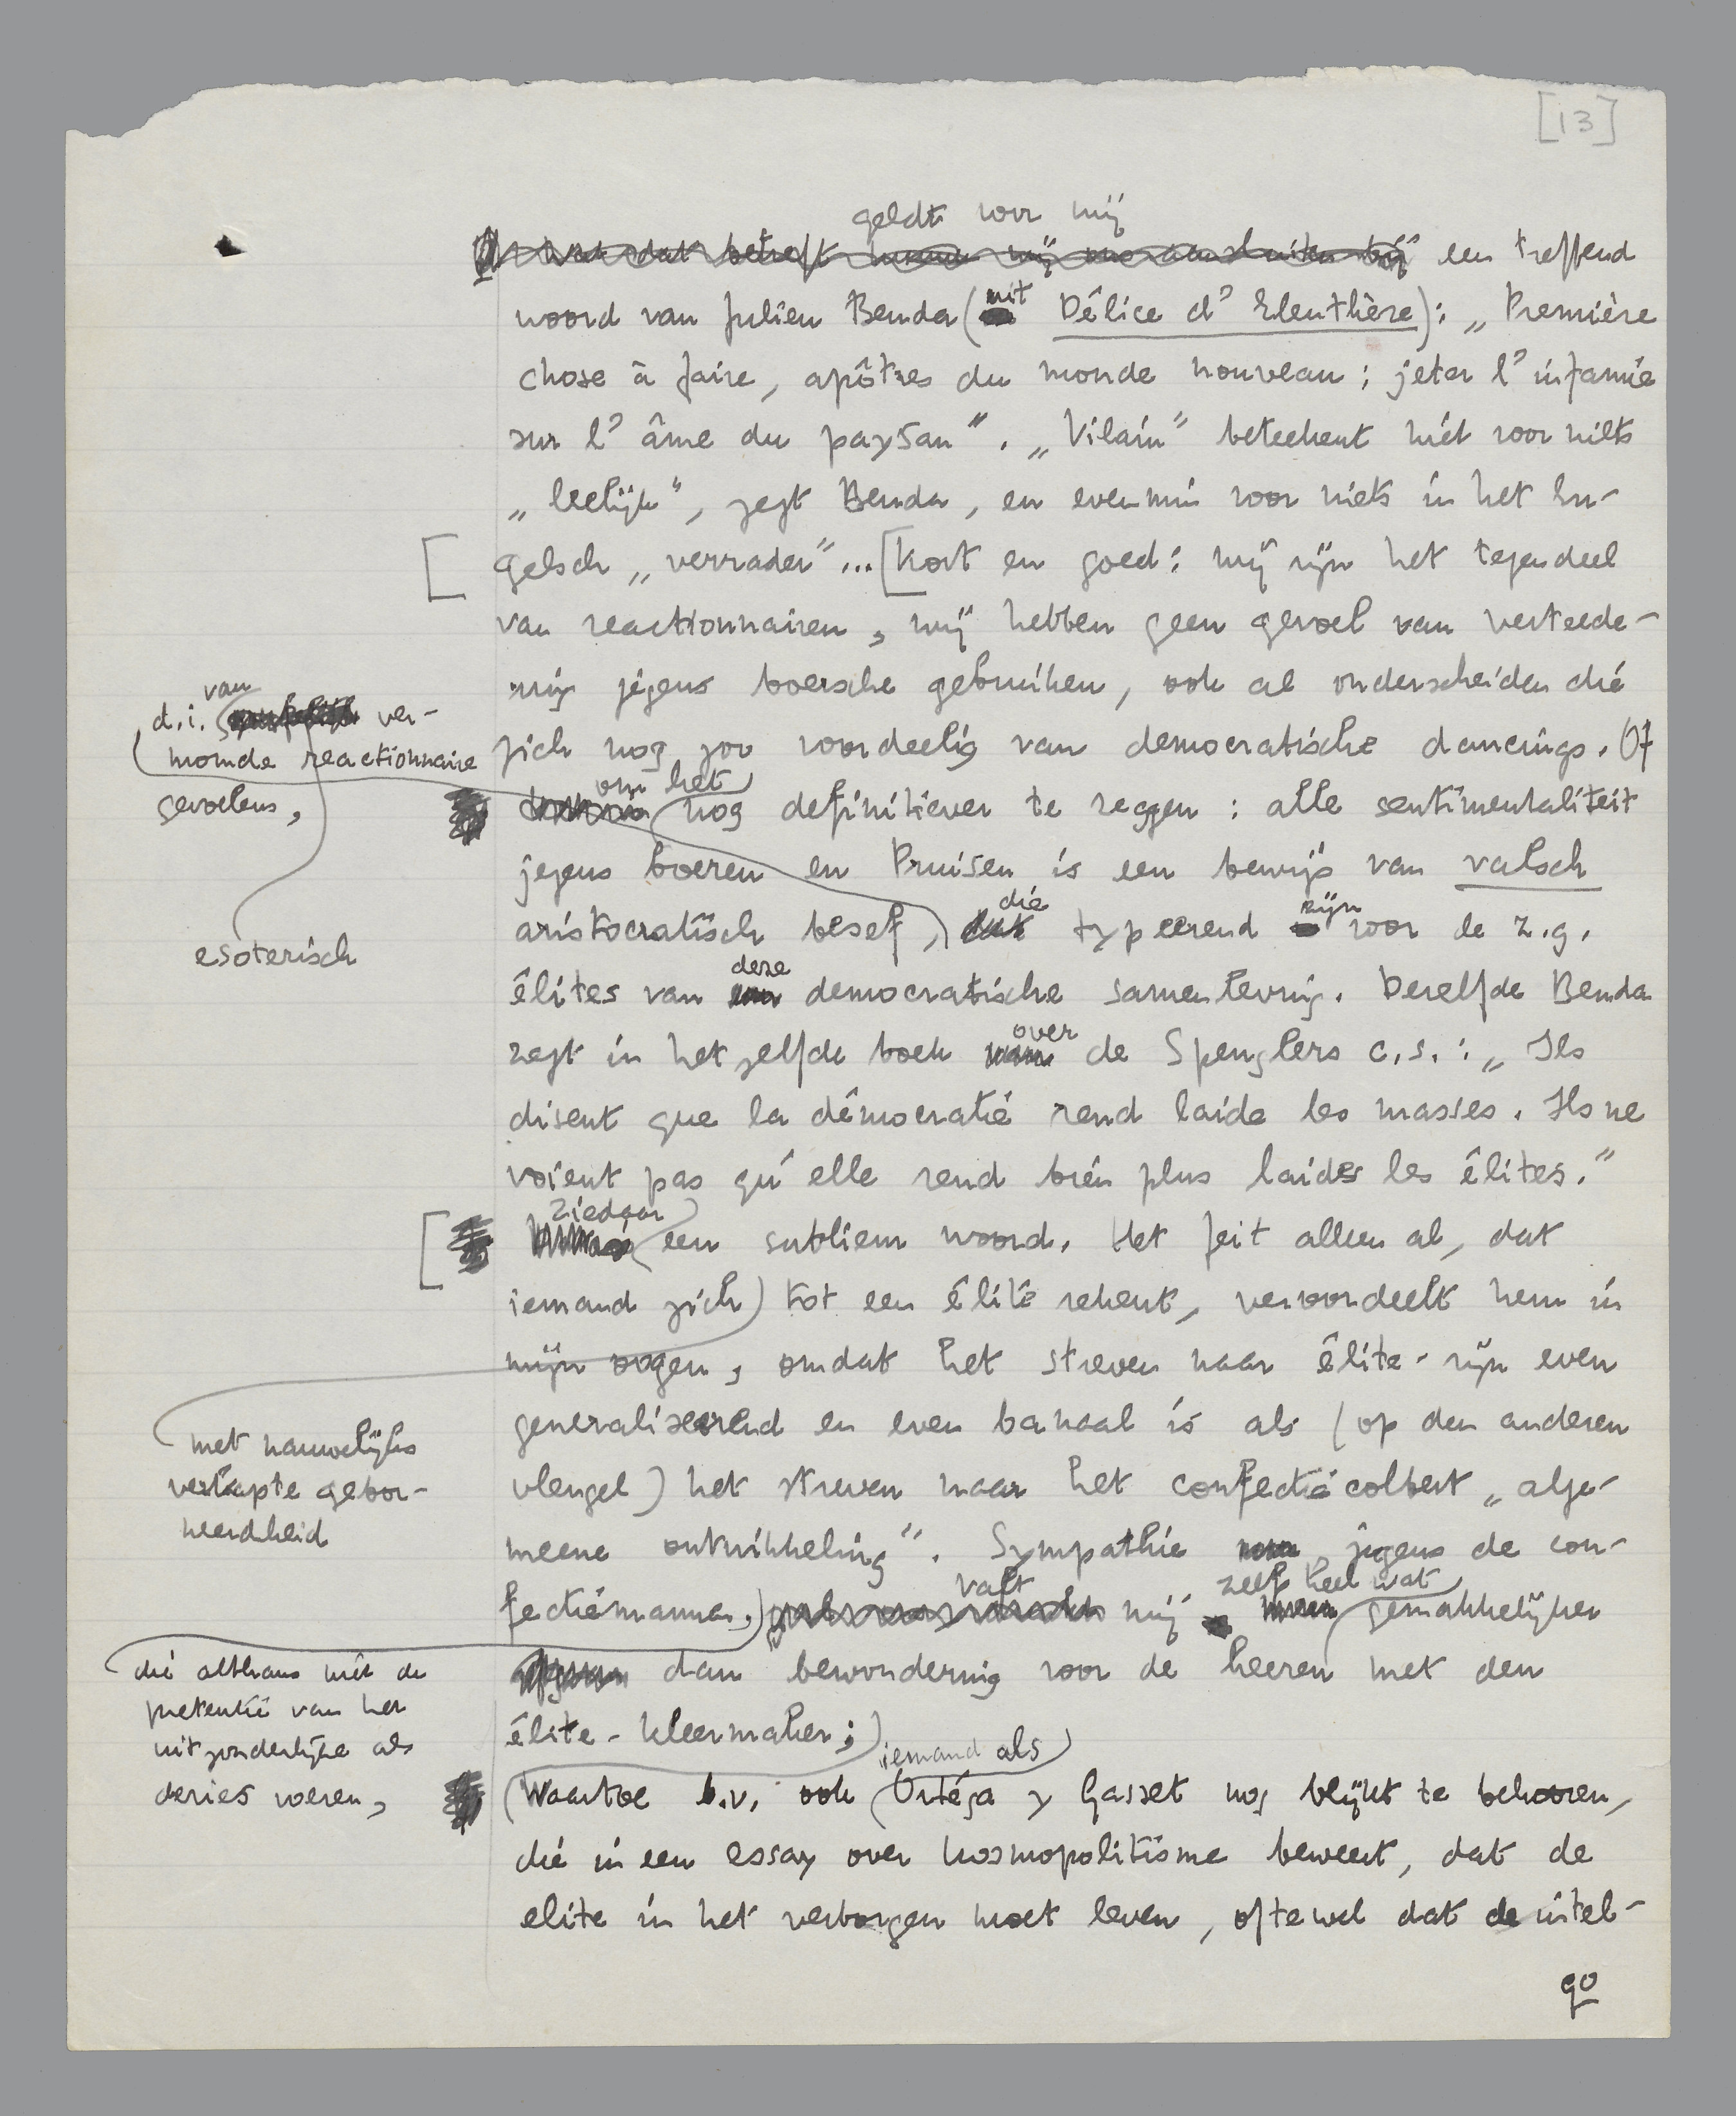 [13]
geldt voor mij
wat dat betreft kunnen wij ons aansluiten bij een treffend
woord van Julien Benda (uit Délice d'Eleuthère): „Première
chose à faire, apôtres du monde nouveau: jeter l'infamie
sur l'âme du paysan”. „Vilain” beteekent niet voor niets
„leelijk”, zegt Benda, en evenmin voor niets in het En-
gelsch „verrader”... [Kort en goed: wij zijn het tegendeel
van reactionnairen, wij hebben geen gevoel van verteede-
ring jegens boersche gebruiken, ook al onderscheiden die
zich nog zoo voordeelig van democratische dancings. Of
om het
nog definitiever te zeggen: alle sentimentaliteit
jegens boeren en Pruisen is een bewijs van valsch
aristocratisch besef, die typeerend zijn voor de z.g.
élites van deze democratische samenleving. Dezelfde Benda
zegt in hetzelfde boek over de Spenglers c.s.: „Ils
disent que la démocratie rend laide les masses. Ils ne
voient pas qu'elle rend bien plus laides les élites.”
Ziedaar
[ een subliem woord. Het feit alleen al, dat
iemand zich) tot een élite rekent, veroordeelt hem in
mijn oogen, omdat het streven naar élite-zijn even
generaliseerend en even banaal is als (op den anderen
vleugel) het streven naar het confectiecolbert „alge-
meene ontwikkeling”. Sympathie jegens de con-
fectiemannen, valt mij zelf heel wat gemakkelijker
dan bewondering voor de heeren met den
élite-kleermaker;
(Waartoe b.v. ook iemand als Ortéga y Gasset nog blijkt te behooren,
die in een essay over kosmopolitisme beweert, dat de
elite in het verborgen moet leven, oftewel dat de intel-
90
d.i. van ver-
momde reactionnaire
gevoelens,
esoterisch
met nauwelijks
verkapte gebor-
neerdheid
die althans niet de
pretentie van het
uitzonderlijke als
devies voeren,